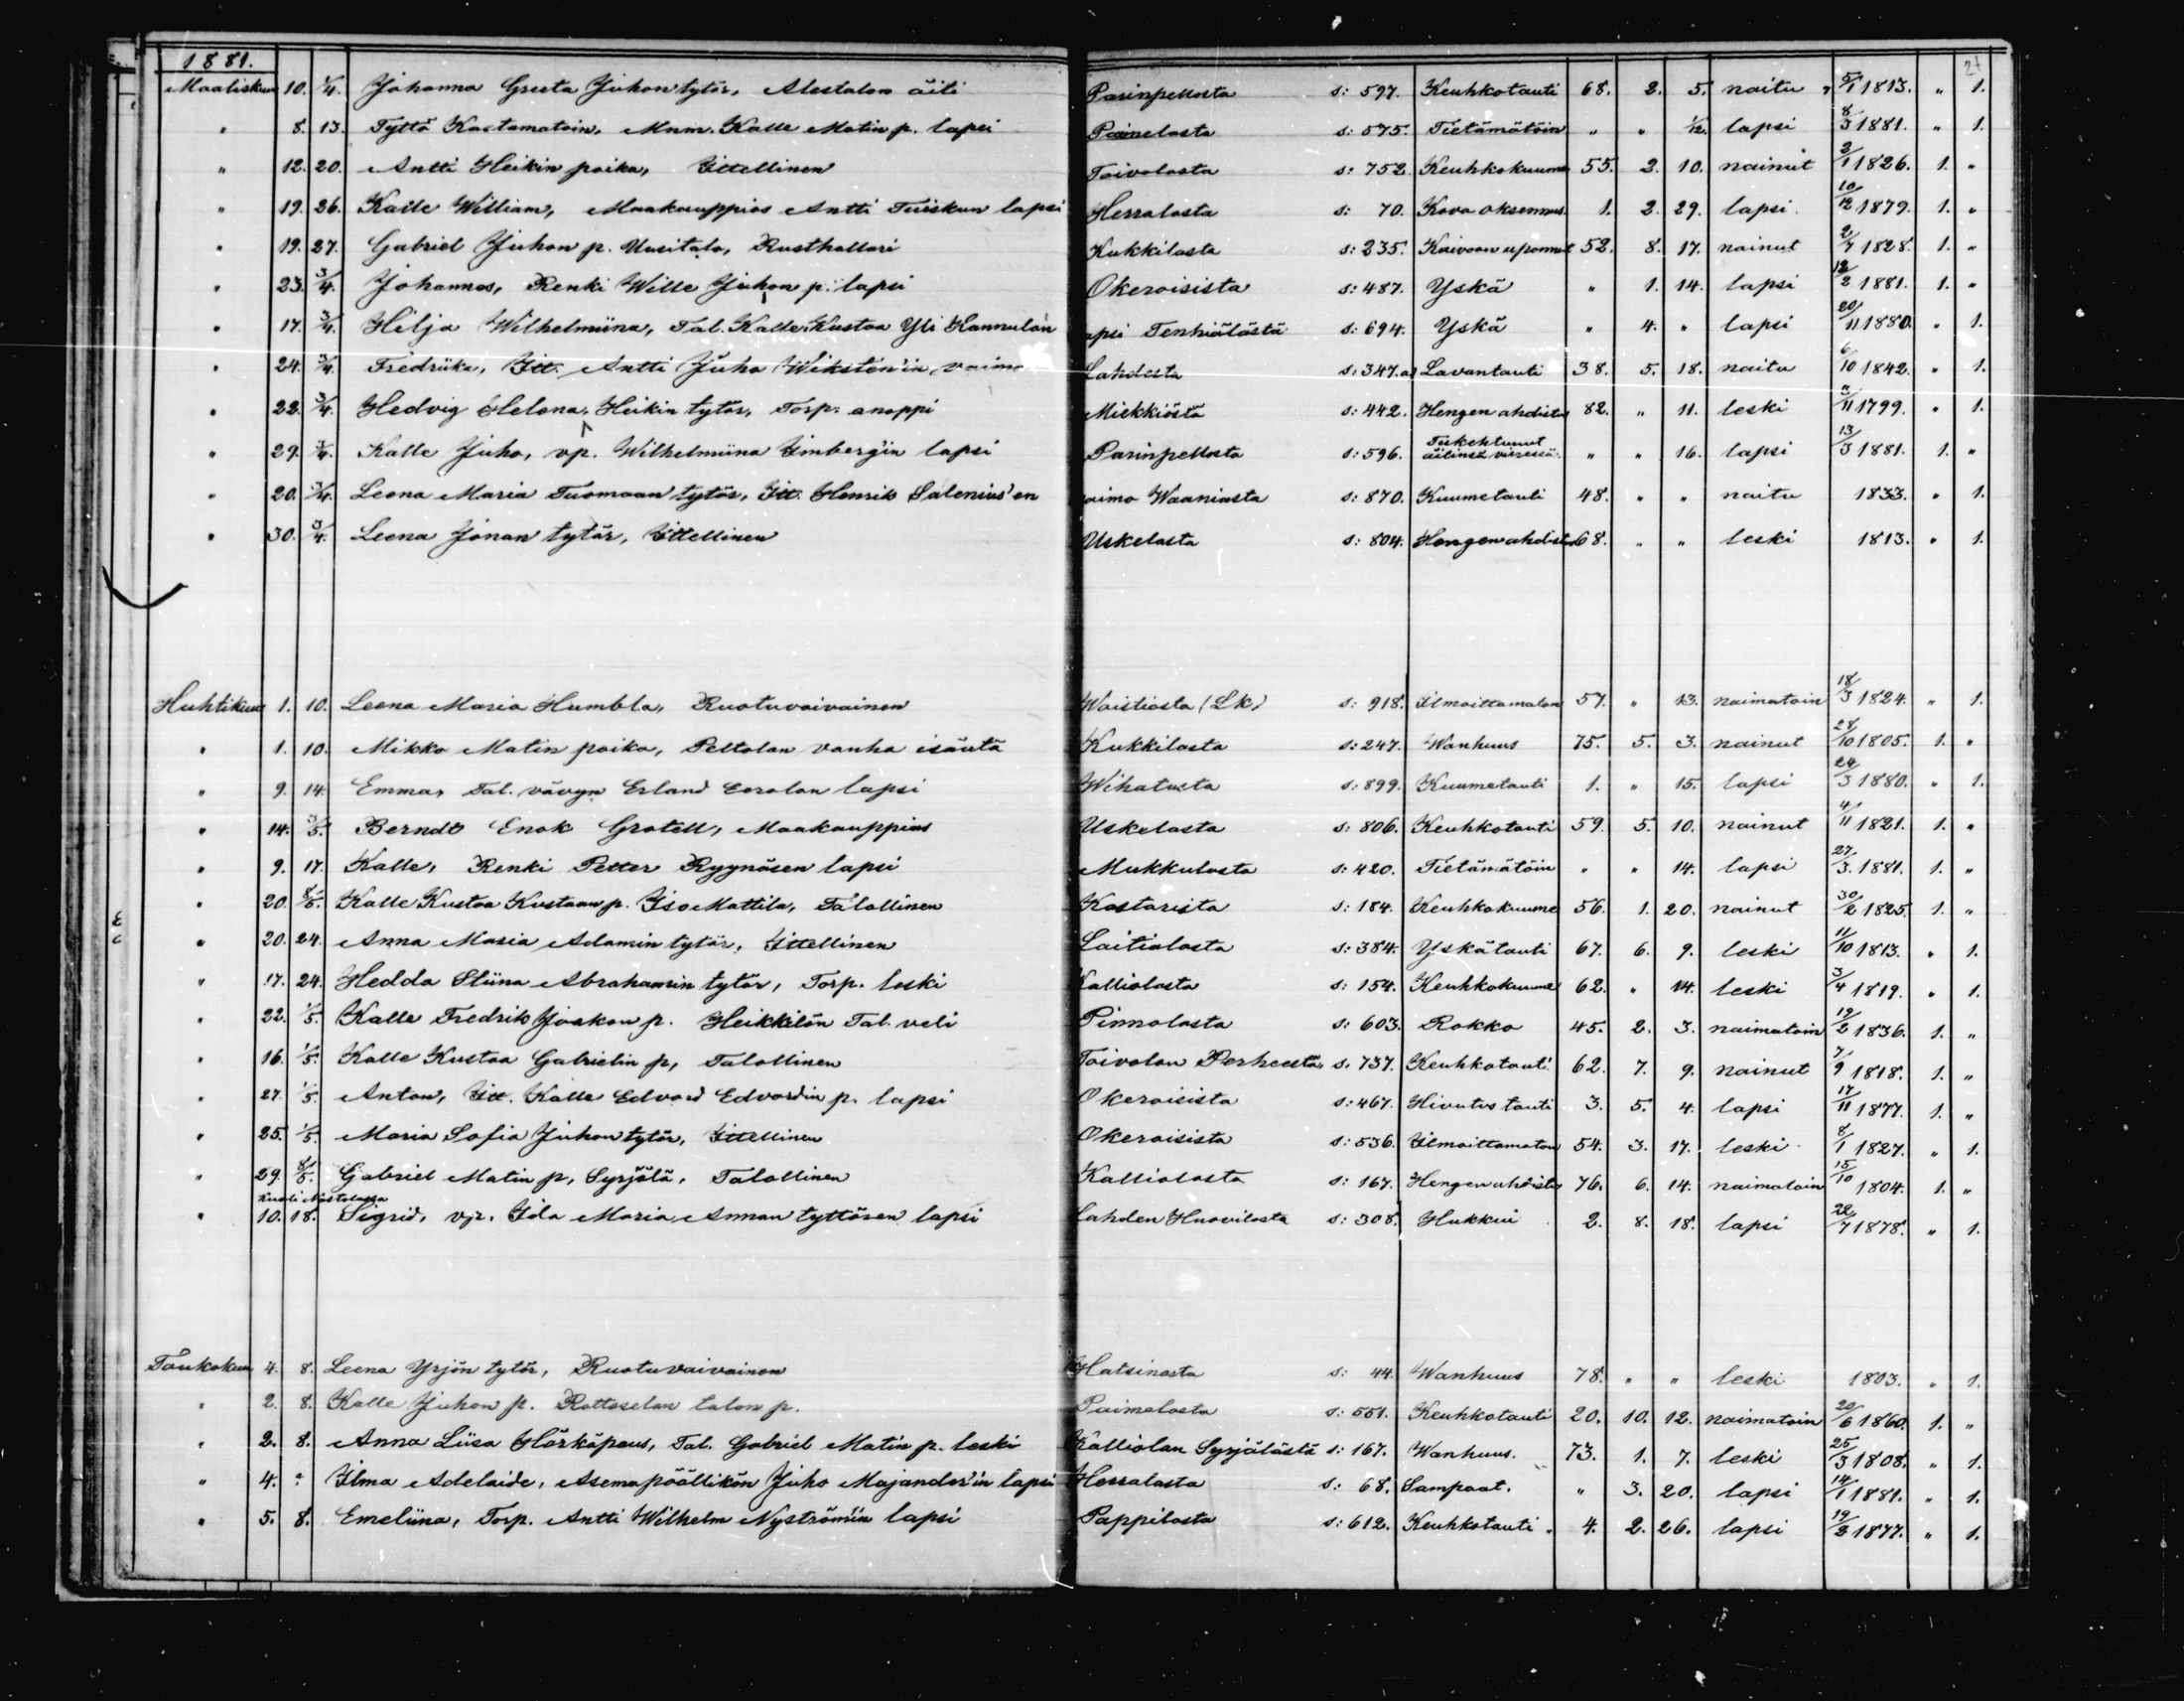 1881.
24
Maaliskuu 10. 1/4. Johanna Greeta Juhon tytör, Alestalon äiti Parinpellosta s: 597. Keuhkotauti 68. 2. 5. naitu 5/1 1813. " 1.
" 8. 13. Tyttö Kastamatoin, Mnm. Kalle Matin p. lapsi Paimelasta s: 575. Tietämätöin " " 1/12. lapsi 8/3 1881. " 1.
" 12. 20. Antti Heikin poika, Itellinen Toivolasta s: 752. Keuhkokuume 55. 2. 10. nainut 2/1 1826. 1. "
" 19. 26. Kalle William, Maakauppias Antti Tuiskun lapsi Herralasta s: 70. Kova oksennus. 1. 2. 29. lapsi. 10/12 1879. 1. "
" 19. 27. Gabriel Juhon p. Uusitalo, Rusthollari Kukkilasta s: 235. Kaivoon uponnut 52. 8. 17. nainut 2/7 1828. 1. "
" 23. 3/4. Johannes, Renki Wille Juhon p. lapsi Okeroisista s: 487. Yskä " 1. 14. lapsi 12/2 1881. 1. "
" 17. 3/4. Hilja Wilhelmiina, Tal. Kalle Kustaa Yli Hannulan apsi Tenhiälästä s: 694. Yskä " 4. " lapsi 20/11 1880. " 1.
" 24. 3/4. Fredriika, Itt. Antti Juho Wikstén'in vaimo Lahdesta s: 347.a. Lavantauti 38. 5. 18. naitu 6/10 1842. " 1.
" 22. 3/4. Hedvig Helena, Heikin tytär, Torp. anoppi Miekkiöstä s: 442. Hengen ahdistus 82. " 11. leski 3/11 1799. " 1.
" 29. 3/4. Kalle Juho, vp. Wilhelmiina Limberg'in lapsi Parinpellosta s: 596. Tukehtunut äitinsä vieressä. " " 16. lapsi 13/3 1881. 1. "
" 20. 3/4. Leena Maria Tuomaan tytär, Itt. Henrik Salenius'en aimo Waaniasta s: 870. Kuumetauti 48. " " naitu 1833. " 1.
" 30. 3/4. Leena Jonan tytär, Ittellinen Uskelasta s: 804. Hengenahdistus 68. " " leski 1813. " 1.
Huhtikuu 1. 10. Leena Maria Humbla, Ruotuvaivainen Waistiosta (Lk) s: 918. Ilmoittamaton 57. " 13. naimatoin 18/3 1824. " 1.
" 1. 10. Mikko Matin poika, Peltolan vanha isäntä Kukkilasta s: 247. Wanhuus 75. 5. 3. nainut 28/10 1805. 1. "
" 9. 14. Emma, Tal. vävyn Erland Eerolan lapsi Wihatusta s: 899. Kuumetauti 1. " 15. lapsi 24/3 1880. " 1.
" 14. 3/5. Berndt Enok Grotell, Maakauppias Uskelasta s: 806. Keuhkotauti 59. 5. 10. nainut 4/11 1821. 1. "
" 9. 17. Kalle, Renki Petter Ryynäsen lapsi Mukkulasta s: 420. Tietämätöin " " 14. lapsi 27/3. 1881. 1. "
" 20. 8/5. Kalle Kustaa Kustaan p. Iso Mattila, Talollinen Kastarista s: 184. Keuhkokuume 56. 1. 20. nainut 30/2 1825. 1. "
" 20. 24. Anna Maria Adamin tytär, Ittellinen Laitialasta s: 384. Yskätauti 67. 6. 9. leski 11/10 1813. " 1.
" 17. 24. Hedda Stiina Abrahamin tytär, Torp. leski Kalliolasta s: 154. Keuhkokuume 62. " 14. leski 3/4 1819. " 1.
" 22. 1/5. Kalle Fredrik Joakon p. Heikkilän Tal. veli Pinnolasta s: 603. Rokko 45. 2. 3. naimatoin 19/2 1836. 1. "
" 16. 1/5. Kalle Kustaa Gabrielin p, Talollinen Toivolan Perheestä, s. 737. Keuhkotauti 62. 7. 9. nainut 7/9 1818. 1. "
" 27. 1/5. Anton, Itt. Kalle Edvard Edvardin p. lapsi Okeroisista s: 467. Hivutus tauti 3. 5. 4. lapsi 17/11 1877. 1. "
" 25. 1/5. Maria Sofia Juhon tytär, Ittellinen Okeroisista s: 536. Ilmoittamaton 54. 3. 17. leski 8/1 1827. " 1.
" 29. 8/5. Gabriel Matin p, Syrjälä, Talollinen Kalliolasta s: 167. Hengenahdistus 76. 6. 14. naimatoin 15/10 1804. 1. "
kuoli Nastolassa
" 10. 18. Sigrid, vp. Ida Maria Annan tyttären lapsi Lahden Huovilasta s: 308. Hukkui 2. 8. 18. lapsi 22/7 1878. " 1.
Toukokuu 4. 8. Leena Yrjön tytär, Ruotuvaivainen Hatsinasta s: 44. Wanhuus 78. " " leski 1803. " 1.
" 2. 8. Kalle Juhon p. Rottoselan talon p. Paimelasta s: 551. Keuhkotauti 20. 10. 12. naimatoin 20/6 1860. 1. "
" 2. 8. Anna Liisa Härkäpaus, Tal. Gabriel Matin p. leski Kalliolan Syrjälästä s: 167. Wanhuus. 73. 1. 7. leski 25/3 1808. " 1.
" 4. ? Ilma Adelaide, Asemapäällikön Juho Majander'in lapsi Herralasta s: 68. Sampaat. " 3. 20. lapsi 14/1 1881. " 1.
" 5. 8. Emeliina, Torp. Antti Wilhelm Nyström'in lapsi Pappilasta s: 612. Keuhkotauti. 4. 2. 26. lapsi 19/2 1877. " 1.